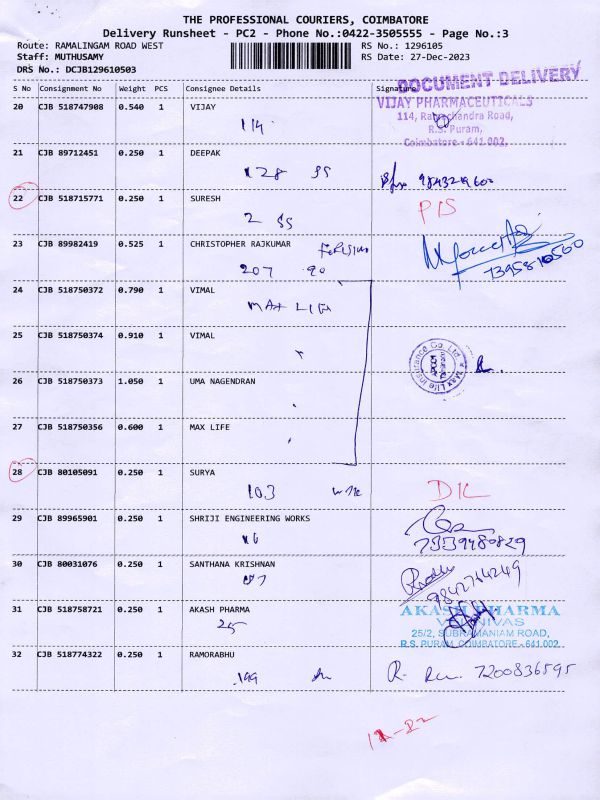 THE PROFESSIONAL COURIERS, COIMBATORE
Delivery Runsheet - PC2 - Phone No.:0422-3505555 - Page No.:3
Route: RAMALINGAM ROAD WEST RS No.: 1296105
Staff: MUTHUSAMY RS Date: 27-Dec-2023
DRS No.: DCJB129610503
S No Consignment No Weight PCS Consignee Details Signature
DOCUMENT DELIVERY
20 CJB 518747908 0.540 1 VIJAY
114
VIJAY PHARMACEUTICALS
114, Ramachandra Road,
R.S. Puram,
Coimbatore - 641 002.
21 CJB 89712451 0.250 1 DEEPAK
128 SS
22 CJB 518715771 0.250 1 SURESH
2 SS
23 CJB 89982419 0.525 1 CHRISTOPHER RAJKUMAR
207 90
7395810560
24 CJB 518750372 0.790 1 VIMAL
MAX LIG
25 CJB 518750374 0.910 1 VIMAL
Max Life Insurance Co. Ltd.
26 CJB 518750373 1.050 1 UMA NAGENDRAN
27 CJB 518750356 0.600 1 MAX LIFE
28 CJB 80105091 0.250 1 SURYA
103
DIL
29 CJB 89965901 0.250 1 SHRIJI ENGINEERING WORKS
16
7339480829
30 CJB 80031076 0.250 1 SANTHANA KRISHNAN
9842764249
31 CJB 518758721 0.250 1 AKASH PHARMA
25
AKASH PHARMA
25/2, SUBRAMANIAM ROAD,
R.S. PURAM, COIMBATORE - 641 002.
32 CJB 518774322 0.250 1 RAMORABHU
199
7200836595